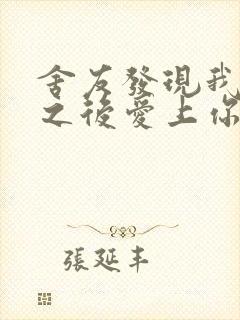 舍友發現我
之後愛上你
張延丰